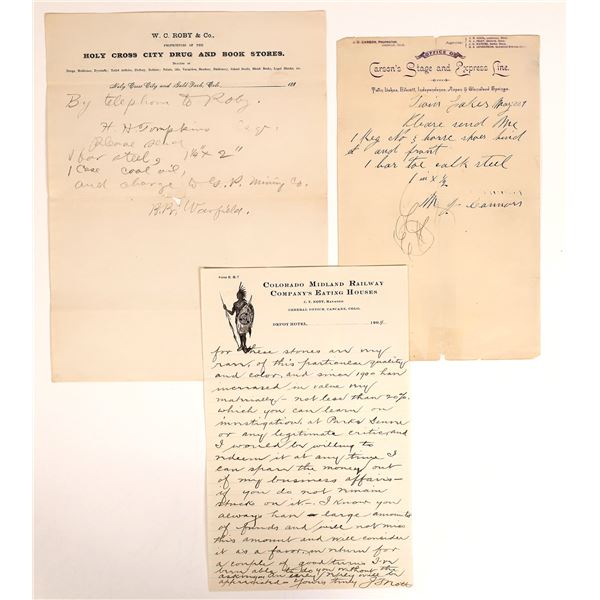 W. C. ROBY & Co.,
PROPRIETORS OF THE
HOLY CROSS CITY DRUG AND BOOK STORES.
Holy Cross City and Gold Park, Col. 188
By telephone to Roby.
H. H. Tompkins
Please send
1 bar steel, 1/2" x 2"
1 Case coal oil,
and charge to G. P. Mining Co.
B. B. Warfield.
J. C. CARSON, PROPRIETOR
OFFICE OF
Carson's Stage and Express Line
Twin Lakes, Everett, Independence, Aspen & Glenwood Springs.
Twin Lakes May 2887
Please send Me
1 Keg No 3 horse shoes hind
and front
1 bar toe calk steel
1 in x 1/2
M J Connors
COLORADO MIDLAND RAILWAY
COMPANY'S EATING HOUSES
J. T. NOTT, MANAGER
GENERAL OFFICE, CASCADE, COLO.
DEPOT HOTEL, 1904
for these stones are very
rare, of this particular quality
and color, and since 1900 has
increased in value very
materially – not less than 20%.
which you can learn on
investigation at Parks Genere
or any legitimate critic, and
I would be willing to
redeem it at any time I
can spare the money out
of my business affairs –
if you do not remain
stuck on it. – I know you
always have a large amount
of funds and will not miss
this amount and will consider
it as a favor in return for
a couple of good turns I've
been able to do you without the
asking an early reply will be
appreciated – Yours truly J T Nott